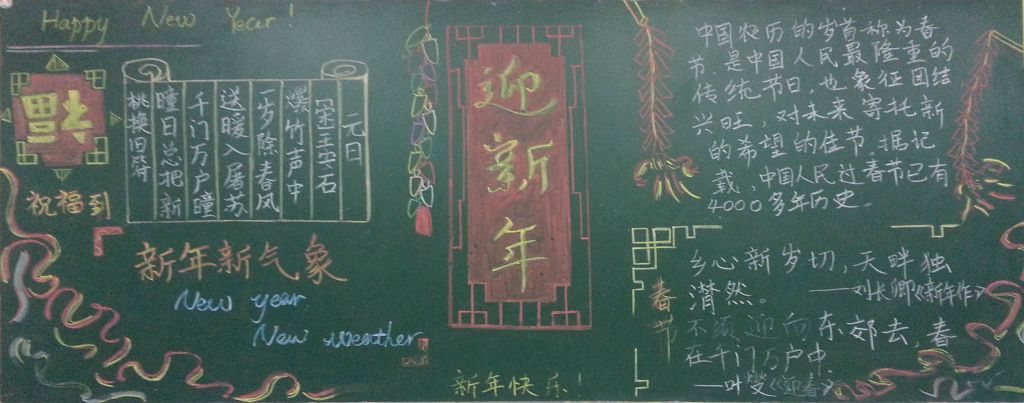 Happy New Year!
福
祝福到
元日
[宋]王安石
爆竹声中
一岁除春风
送暖入屠苏
千门万户瞳
瞳日总把新
桃换旧符
新年新气象
New year
New weather
迎新年
新年快乐!
中国农历的岁首称为春
节.是中国人民最隆重的
传统节日,也象征团结
兴旺,对未来寄托新
的希望的佳节.据记
载,中国人民过春节已有
4000多年历史.
春节
乡心新岁切,天畔独
潸然。——刘长卿《新年作》
不须迎向东郊去,春
在千门万户中.
——叶燮《迎春》